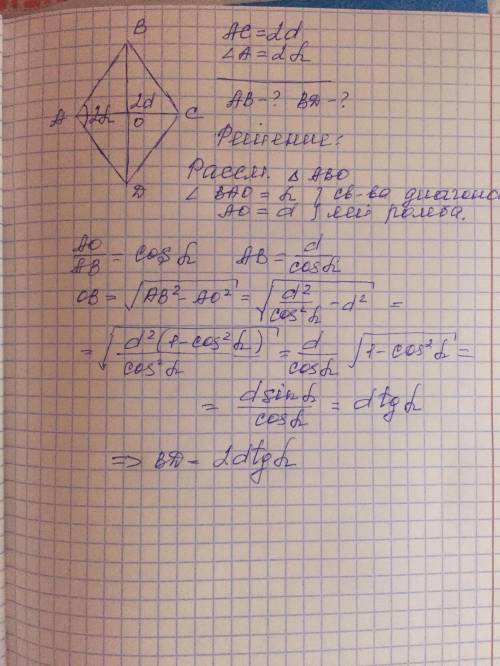 B
AC = 2d
∠A = 2α
A 2α 2d O C
AB - ? BD - ?
Решение:
D
Рассм. △ ABO
∠ BAO = α } св-ва диагона
AO = d } лей ромба.
AO/AB = cos α AB = d/cos α
OB = √(AB² - AO²) = √(d²/cos² α - d²) =
= √(d²(1 - cos² α)/cos² α) = d/cos α √(1 - cos² α) =
= d sin α/cos α = d tg α
⇒ BD = 2d tg α